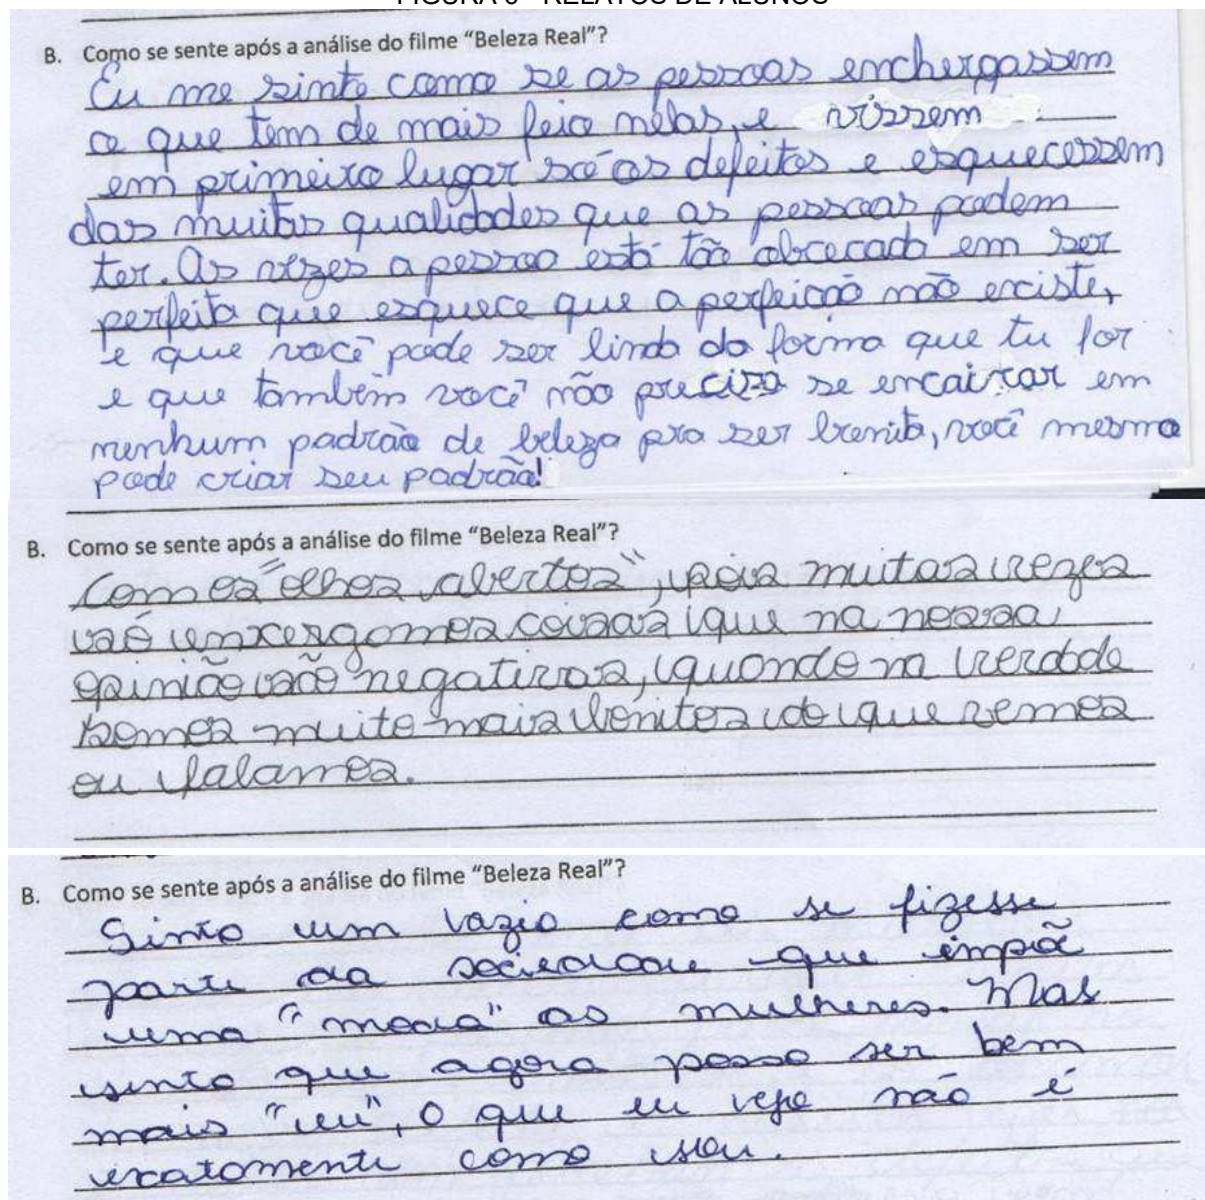 FIGURA 6 - RELATOS DE ALUNOS
B. Como se sente após a análise do filme “Beleza Real”?
Eu me sinto como se as pessoas enchergassem
o que tem de mais feio nelas, e vissem
em primeiro lugar só os defeitos e esquecessem
das muitas qualidades que as pessoas podem
ter. As vezes a pessoa está tão obcecada em ser
perfeita que esquece que a perfeição não existe,
e que você pode ser linda da forma que tu for
e que também você não precisa se encaixar em
nenhum padrão de beleza pra ser bonita, você mesma
pode criar seu padrão!
B. Como se sente após a análise do filme “Beleza Real”?
Com os "olhos abertos", pois muitas vezes
só enxergamos coisas que na nossa
opinião são negativas, quando na verdade
somos muito mais bonitos do que vemos
ou falamos.
B. Como se sente após a análise do filme “Beleza Real”?
Sinto um vazio como se fizesse
parte da sociedade que impõe
uma "moda" as mulheres. Mas
sinto que agora posso ser bem
mais "eu", o que eu vejo não é
exatamente como sou.